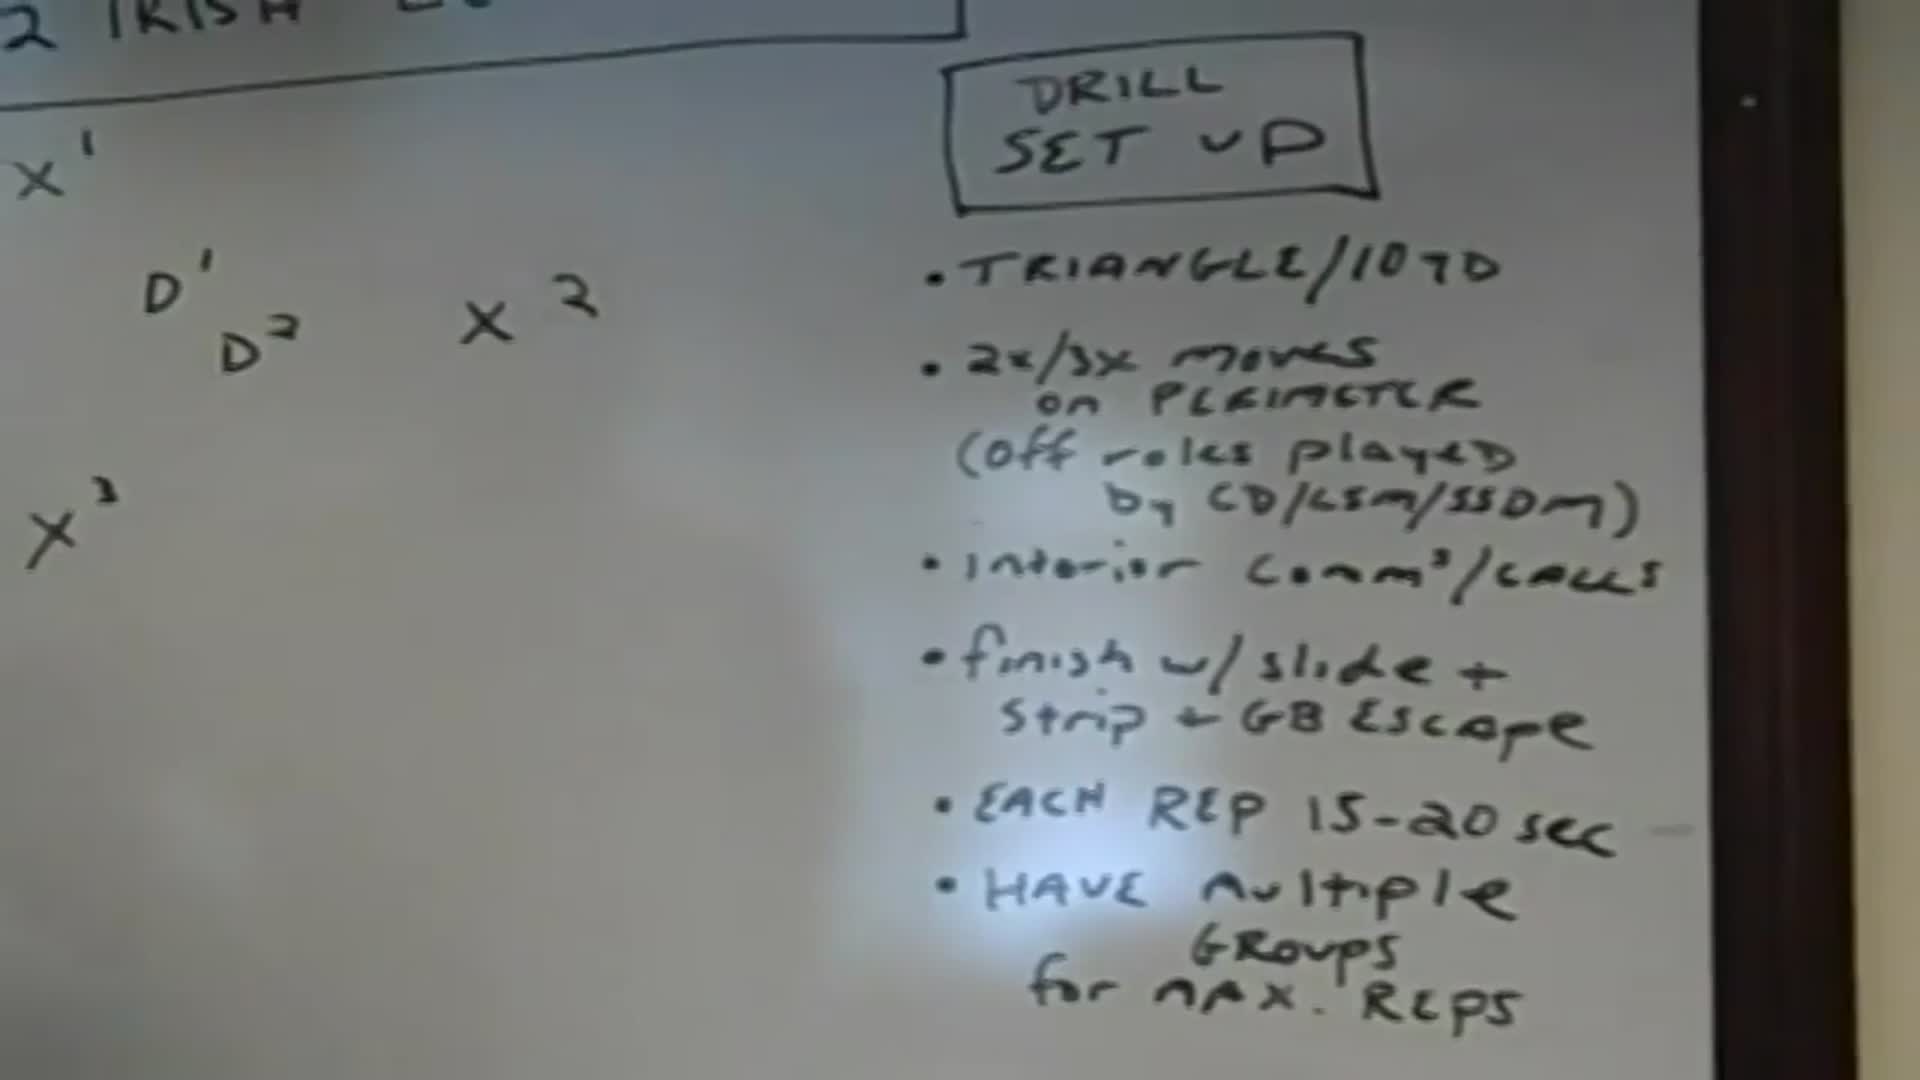 2 IRISH
DRILL
SET UP
X1
D1
D2
X2
X3
• TRIANGLE/10 YD
• 2x/3x moves
on PERIMETER
(Off roles played
by CD/LSM/SSDM)
• interior Comms/CALLS
• finish w/ slide +
Strip + GB Escape
• EACH REP 15-20 sec
• HAVE Multiple
GROUPS
for MAX. REPS